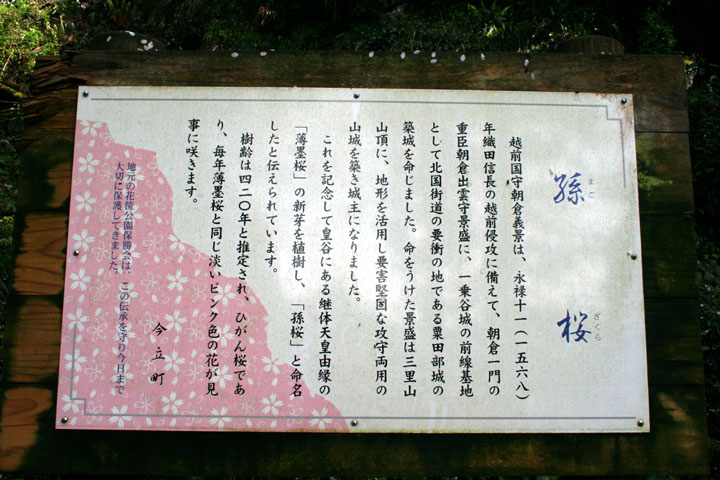 孫桜
まご ざくら
越前国守朝倉義景は、永禄十一(一五六八)
年織田信長の越前侵攻に備えて、朝倉一門の
重臣朝倉出雲守景盛に、一乗谷城の前線基地
として北国街道の要衝の地である粟田部城の
築城を命じました。命をうけた景盛は三里山
山頂に、地形を活用し要害堅固な攻守両用の
山城を築き城主になりました。
これを記念して皇谷にある継体天皇由縁の
「薄墨桜」の新芽を植樹し、「孫桜」と命名
したと伝えられています。
樹齢は四二〇年と推定され、ひがん桜であ
り、毎年薄墨桜と同じ淡いピンク色の花が見
事に咲きます。
今立町
地元の花筐公園保勝会は、この伝承を守り今日まで
大切に保護してきました。